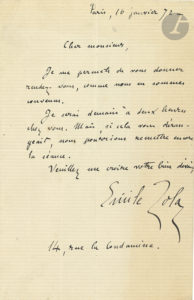 Paris, 10 janvier 72 –
Cher monsieur,
Je me permets de vous donner
rendez-vous, comme nous en sommes
convenus.
Je serai demain à deux heures
chez vous. Mais, si cela vous déran-
geait, nous pourrions remettre encore
la séance.
Veuillez me croire votre bien dévoué
Emile Zola
14, rue La Condamine.